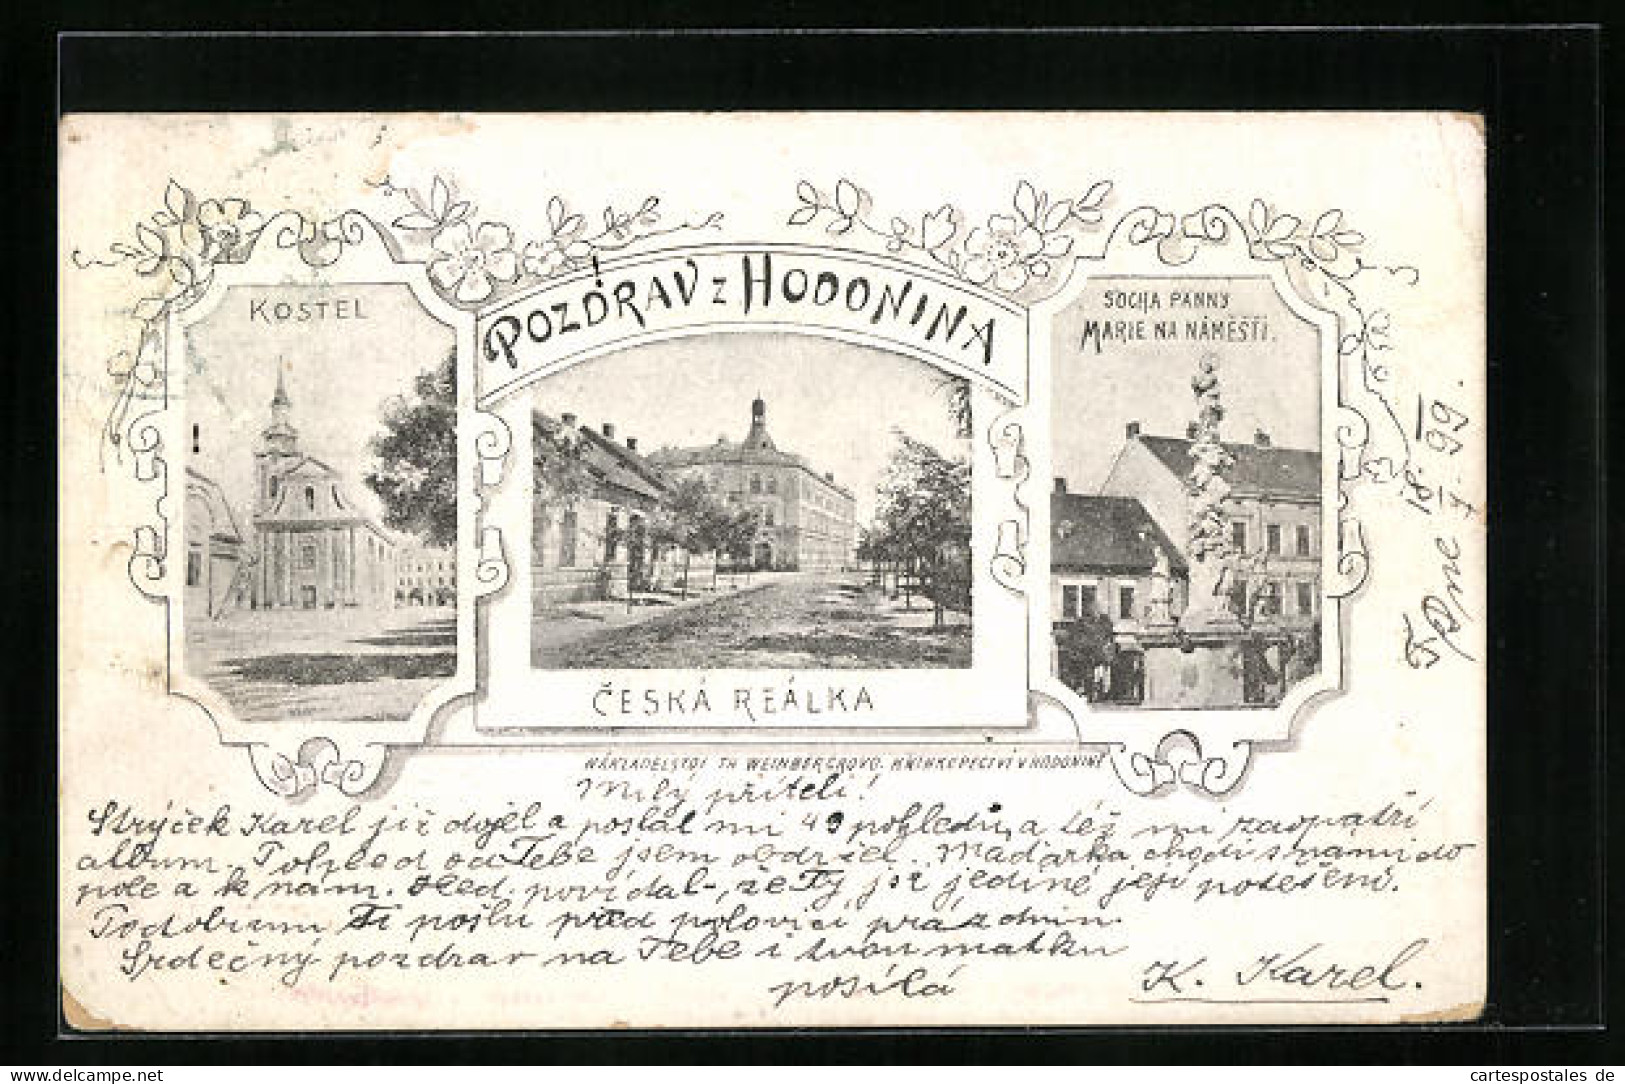 POZDRAV z HODONINA
KOSTEL
SOCHA PANNY
MARIE NA NÁMĚSTÍ.
ČESKÁ REÁLKA
NÁKLADELSTVÍ TH WEINBERGROVO KNIHKUPECTVÍ V HODONINĚ
Milý příteli!
Strýček Karel již dojel a poslal mi 49 pohledů, a též mi zaopatří
album. Pohled od Tebe jsem obdržel. Maďarka chodí s námi do
pole a k nám. děd. povídal, že Ty jsi jediné její potešení.
Podobiznu Ti pošlu před polovicí prázdnin.
Srdečný pozdrav na Tebe i tvou matku
posílá K. Karel.
dne 18/7 99.
cartespostales de